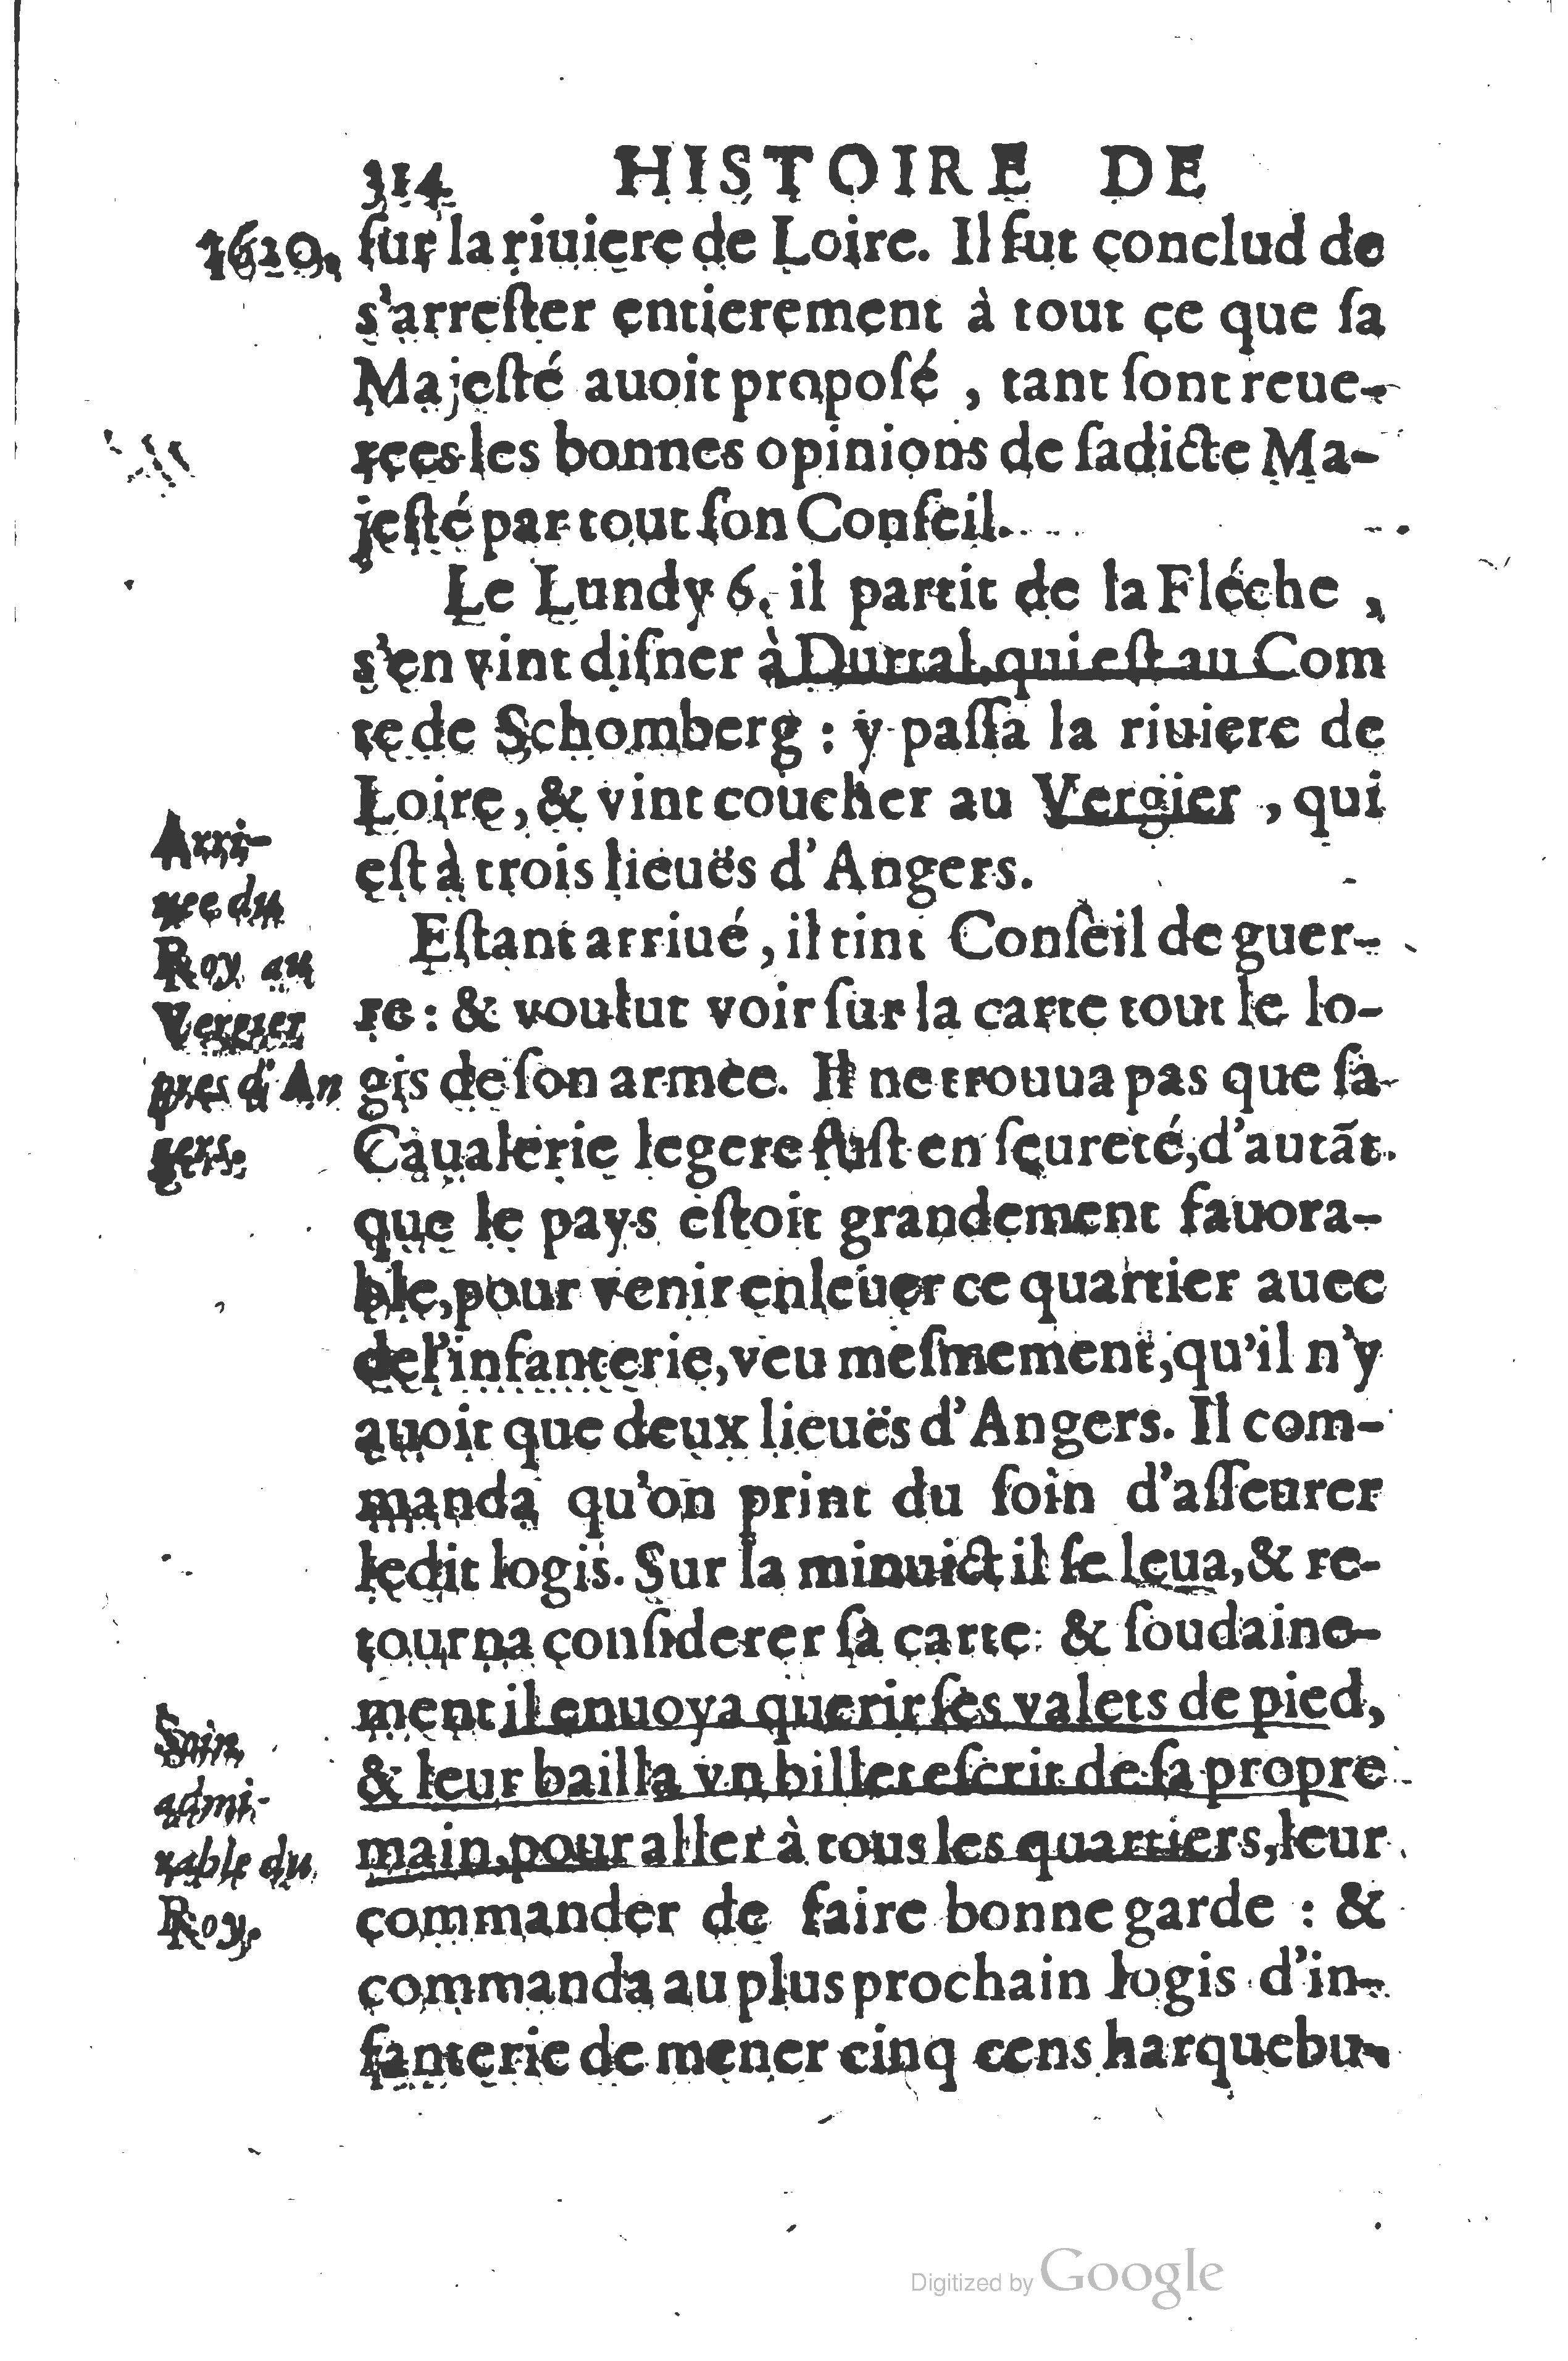 314 HISTOIRE DE
1620.
ſur la riuiere de Loire. Il fut conclud de
s'arreſter entierement à tout ce que ſa
Majeſté auoit propoſé, tant ſont reue-
rees les bonnes opinions de ſadicte Ma-
jeſté par tout ſon Conſeil.
Le Lundy 6. il partit de la Fléche,
s'en vint diſner à Durtal, qui eſt au Com
te de Schomberg : y paſſa la riuiere de
Loire, & vint coucher au Vergier, qui
eſt à trois lieuës d'Angers.
Arri-
uee du
Roy au
Vergier
pres d'An
gers.
Eſtant arriué, il tint Conſeil de guer-
re : & voulut voir ſur la carte tout le lo-
gis de ſon armee. Il ne trouua pas que ſa
Caualerie legere fuſt en ſeureté, d'autãt
que le pays eſtoit grandement fauora-
ble, pour venir enleuer ce quartier auec
de l'infanterie, veu meſmement, qu'il n'y
auoit que deux lieuës d'Angers. Il com-
manda qu'on print du ſoin d'aſſeurer
ledit logis. Sur la minuict il ſe leua, & re-
tourna conſiderer ſa carte : & ſoudaine-
ment il enuoya querir ſes valets de pied,
& leur bailla vn billet eſcrit de ſa propre
main, pour aller à tous les quartiers, leur
commander de faire bonne garde : &
commanda au plus prochain logis d'in-
fanterie de mener cinq cens harquebu-
Soin
admi-
rable du
Roy.
Digitized by Google